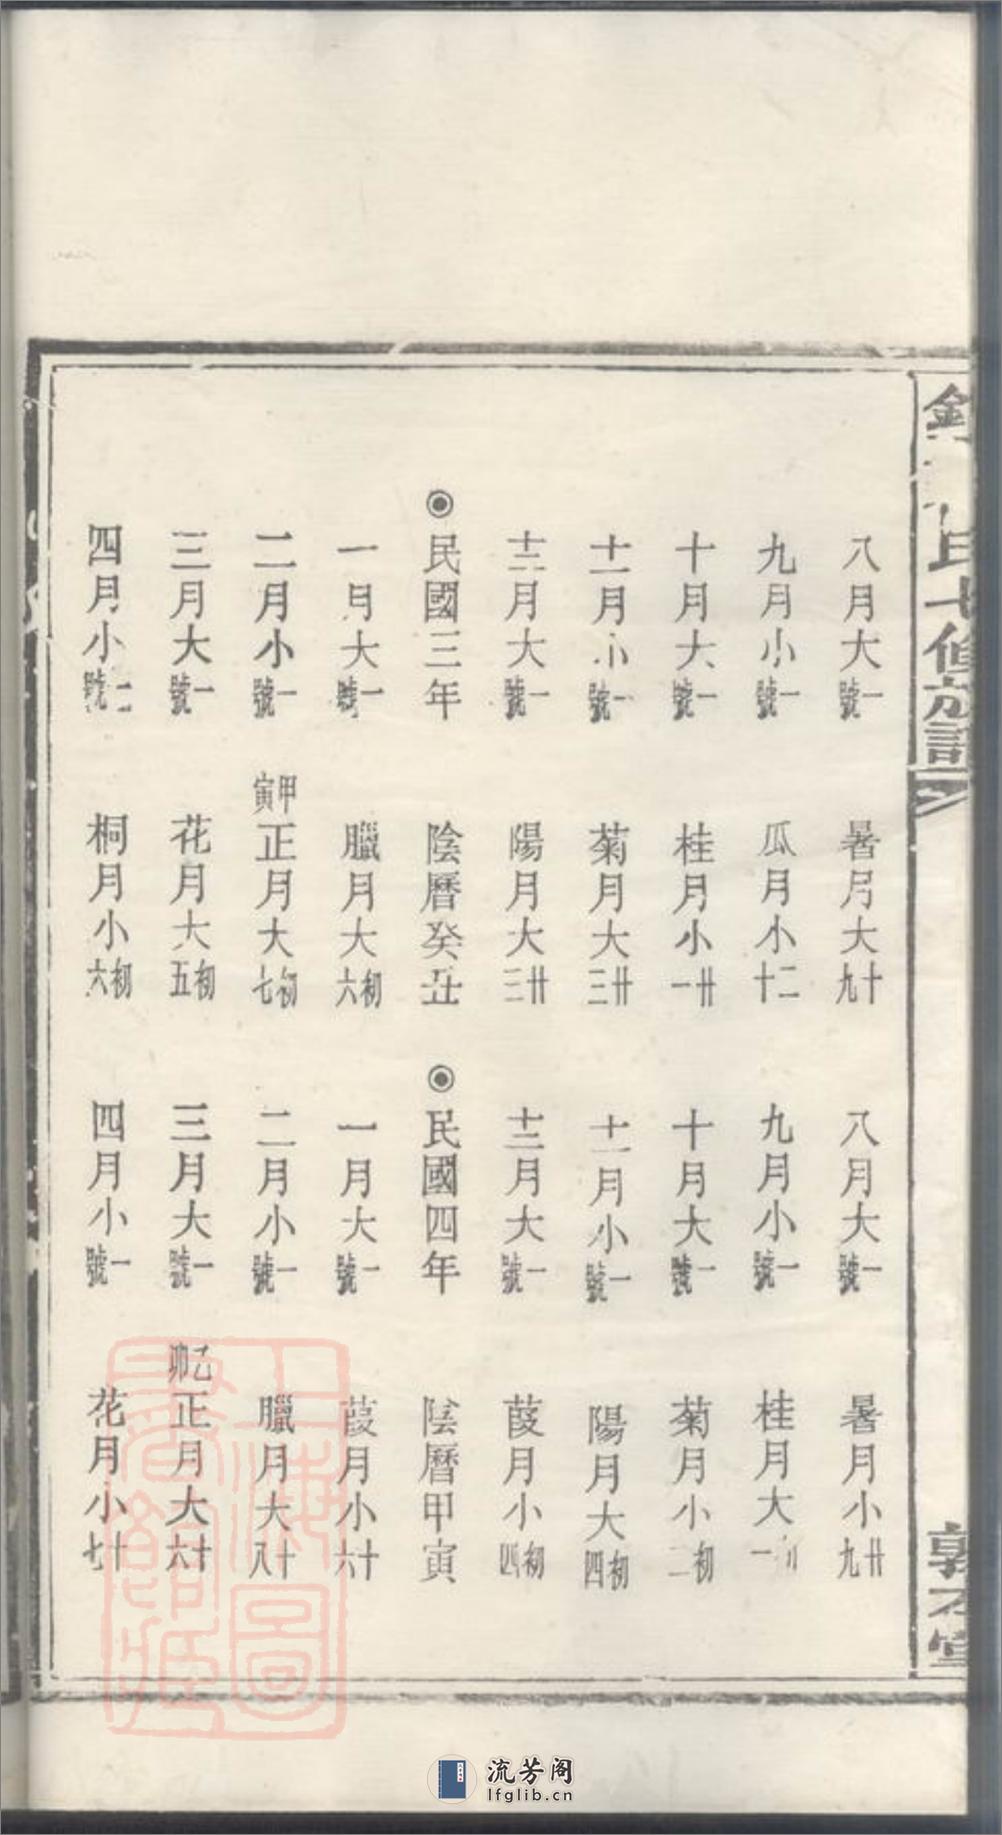 氏七修族譜
敦本堂
八月大一號 暑月大十九 八月大一號 暑月小廿九
九月小一號 瓜月小二十 九月小一號 桂月大初一
十月大一號 桂月小廿一 十月大一號 菊月小初二
十一月小一號 菊月大廿三 十一月小一號 陽月大初四
十二月大一號 陽月大廿三 十二月大一號 葭月小初四
◉民國三年 陰曆癸丑 ◉民國四年 陰曆甲寅
一月大一號 臘月大初六 一月大一號 葭月小十六
二月小一號 甲寅正月大初七 二月小一號 臘月大十八
三月大一號 花月大初五 三月大一號 乙卯正月大十六
四月小號 桐月小初六 四月小一號 花月小十七
上海圖書館藏
流芳阁
lfglib.cn